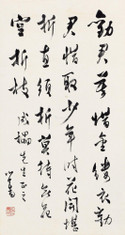 勸君莫惜金縷衣勸
君惜取少年時花開堪
折直須折莫待無花
空折枝 先生正之